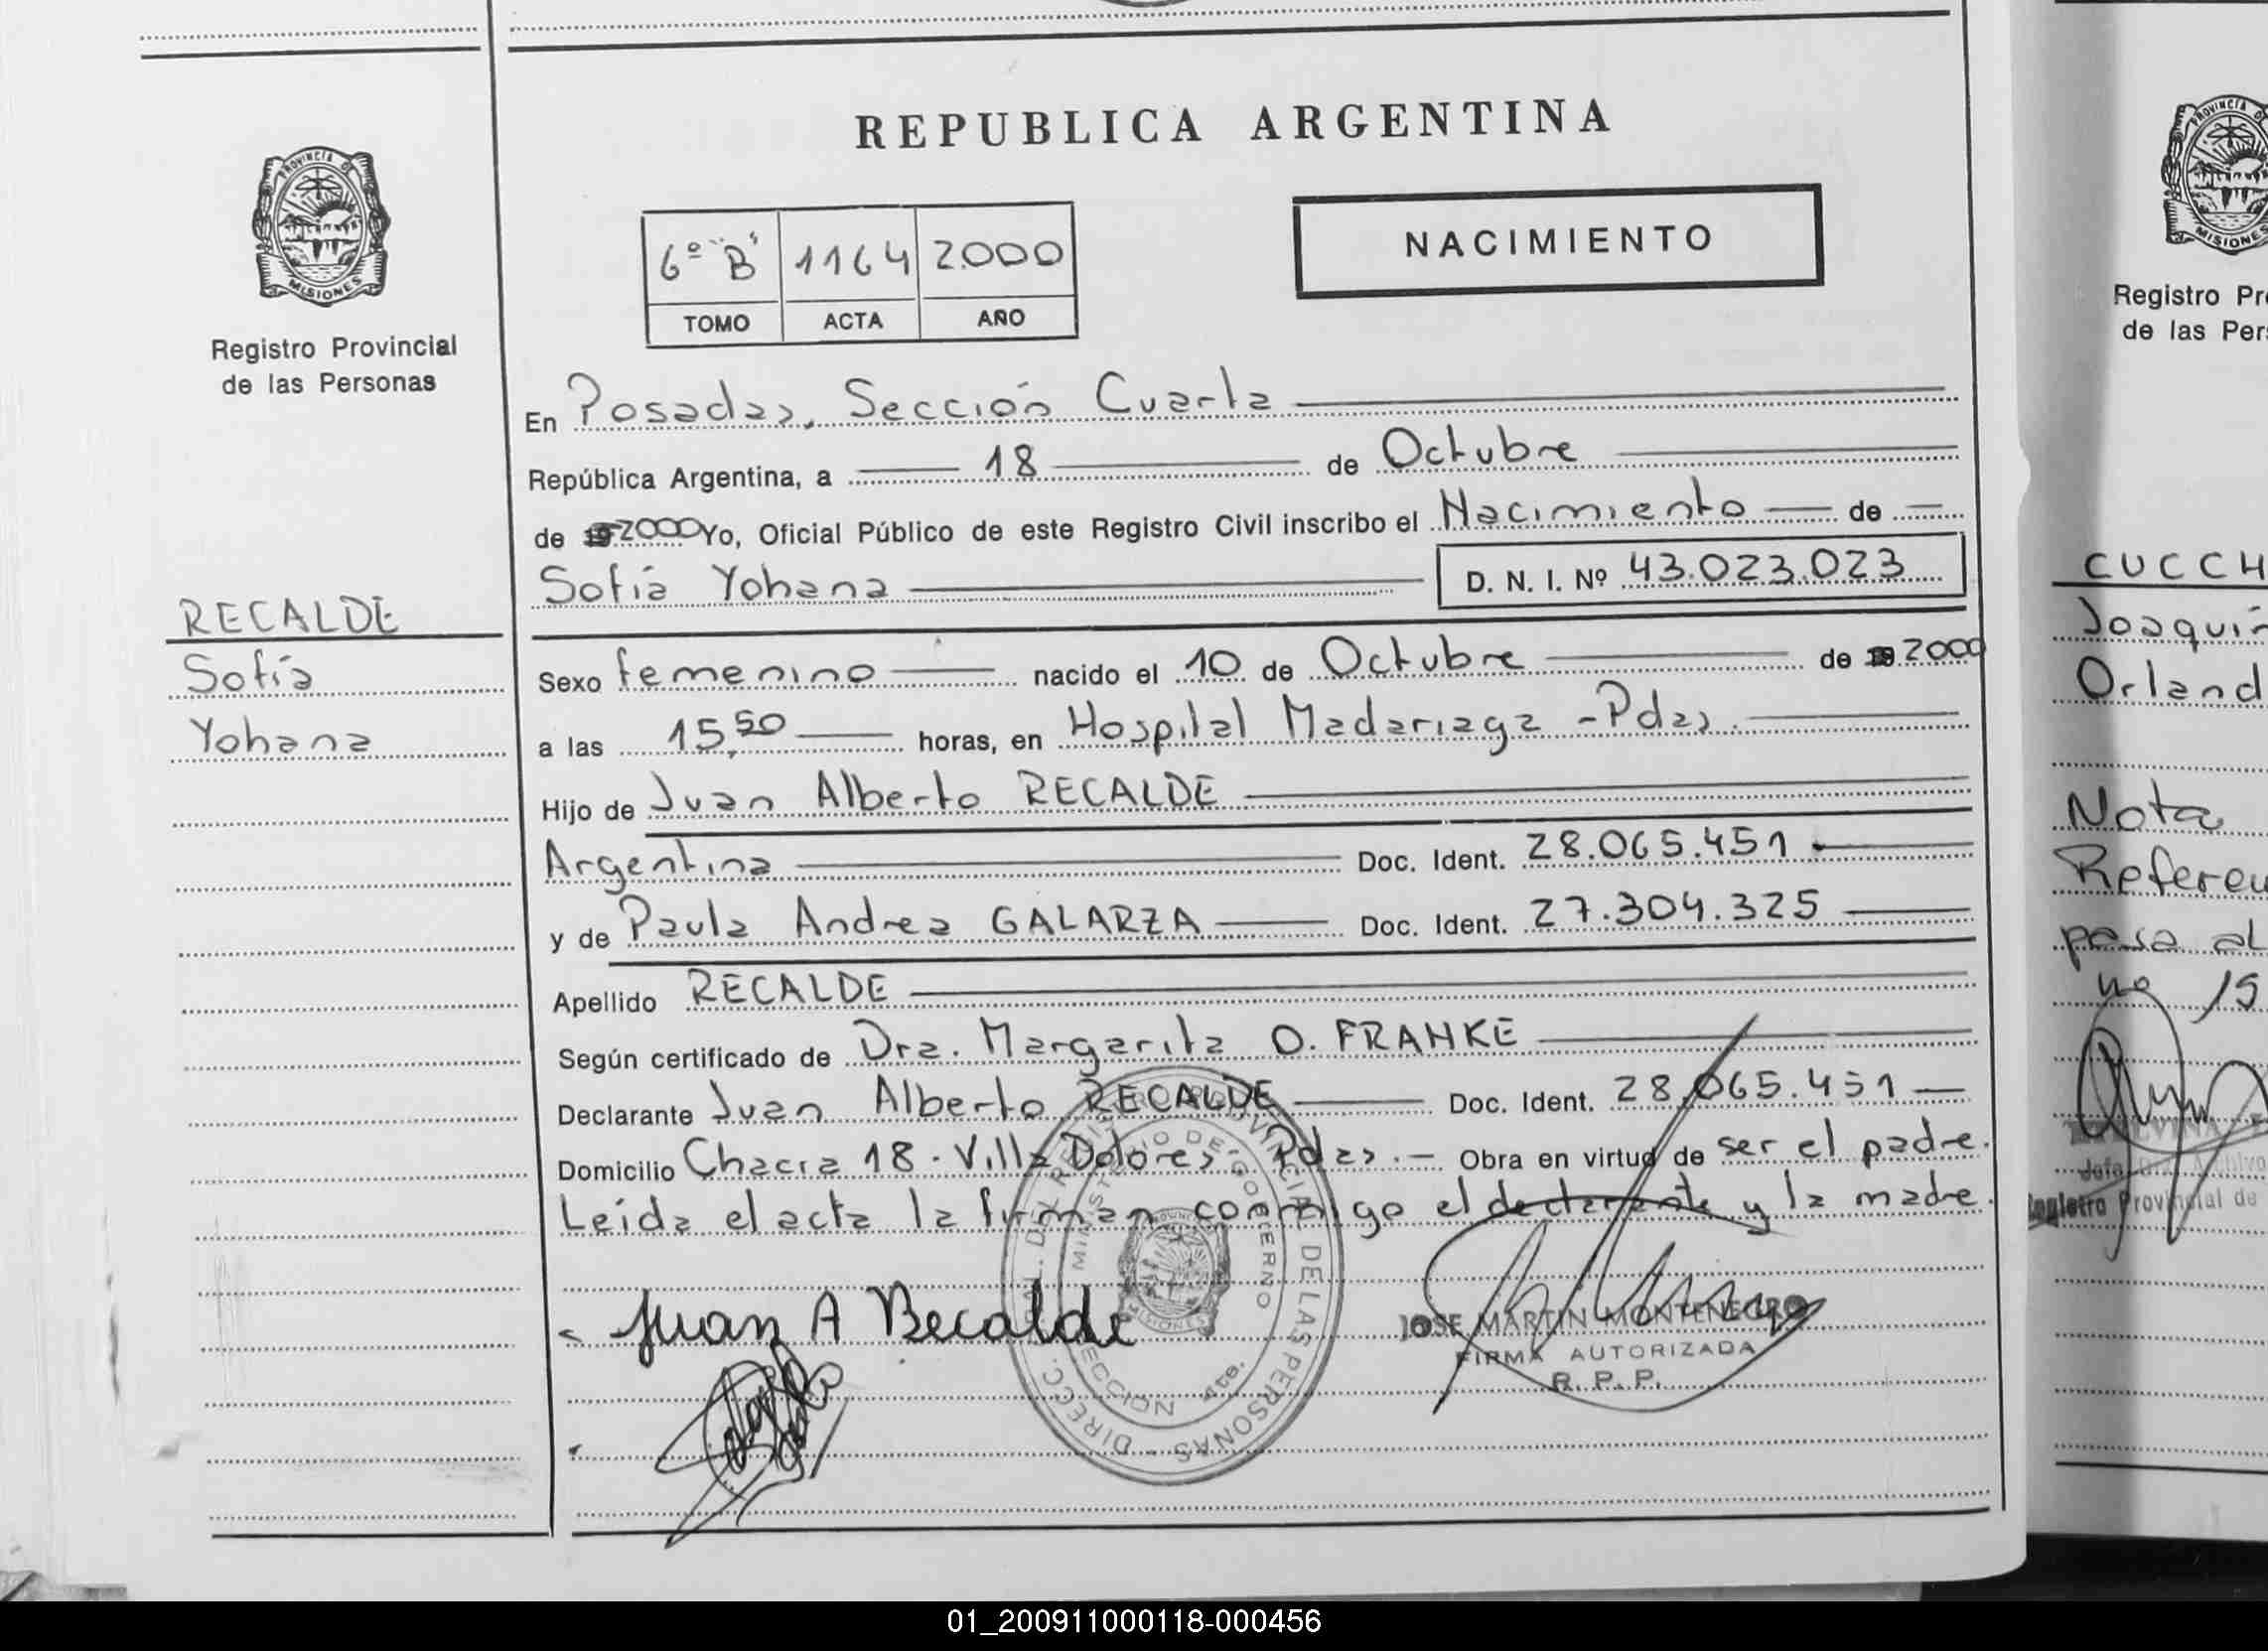 REPUBLICA ARGENTINA
PROVINCIA DE
MISIONES
Registro Provincial
de las Personas
6º "B" 1164 2.000
TOMO ACTA AÑO
NACIMIENTO
En Posadas, Sección Cuarta
República Argentina, a 18 de Octubre
de 2000 Yo, Oficial Público de este Registro Civil inscribo el Nacimiento de
Sofía Yohana D. N. I. Nº 43.023.023
RECALDE
Sofía
Yohana
Sexo femenino nacido el 10 de Octubre de 2000
a las 15,50 horas, en Hospital Madariaga - Pdas.
Hijo de Juan Alberto RECALDE
Argentina Doc. Ident. 28.065.451.
y de Paula Andrea GALARZA Doc. Ident. 27.304.325
Apellido RECALDE
Según certificado de Dra. Margarita O. FRANKE
Declarante Juan Alberto RECALDE Doc. Ident. 28.065.451
Domicilio Chacra 18 - Villa Dolores - Pdas.- Obra en virtud de ser el padre.
Leída el acta la firman conmigo el declarante y la madre.
Juan A Recalde
DIRECC. GRAL. DEL REGISTRO PROVINCIAL DE LAS PERSONAS
MINISTERIO DE GOBIERNO
SECCION 4ta.
JOSE MARTIN MONTENEGRO
FIRMA AUTORIZADA
R. P. P.
PROVINCIA DE
MISIONES
Registro Pr
de las Per
CUCCH
Joaquín
Orland
Nota
Referen
pasa al
no 15
Registro Provincial de
01_200911000118-000456